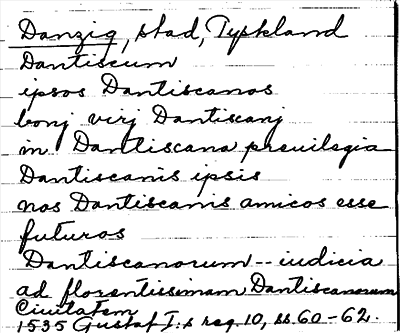 Danzig, stad, Tyskland
Dantiscum
ipsos Dantiscanos
bonj virj Dantiscanj
in Dantiscana preuilegia
Dantiscanis ipsis
nos Dantiscanis amicos esse
futuros
Dantiscanorum -- iudicia
ad florentissimam Dantiscanorum
Ciuitatem
1535 Gustaf I:s reg. 10, ss. 60-62.